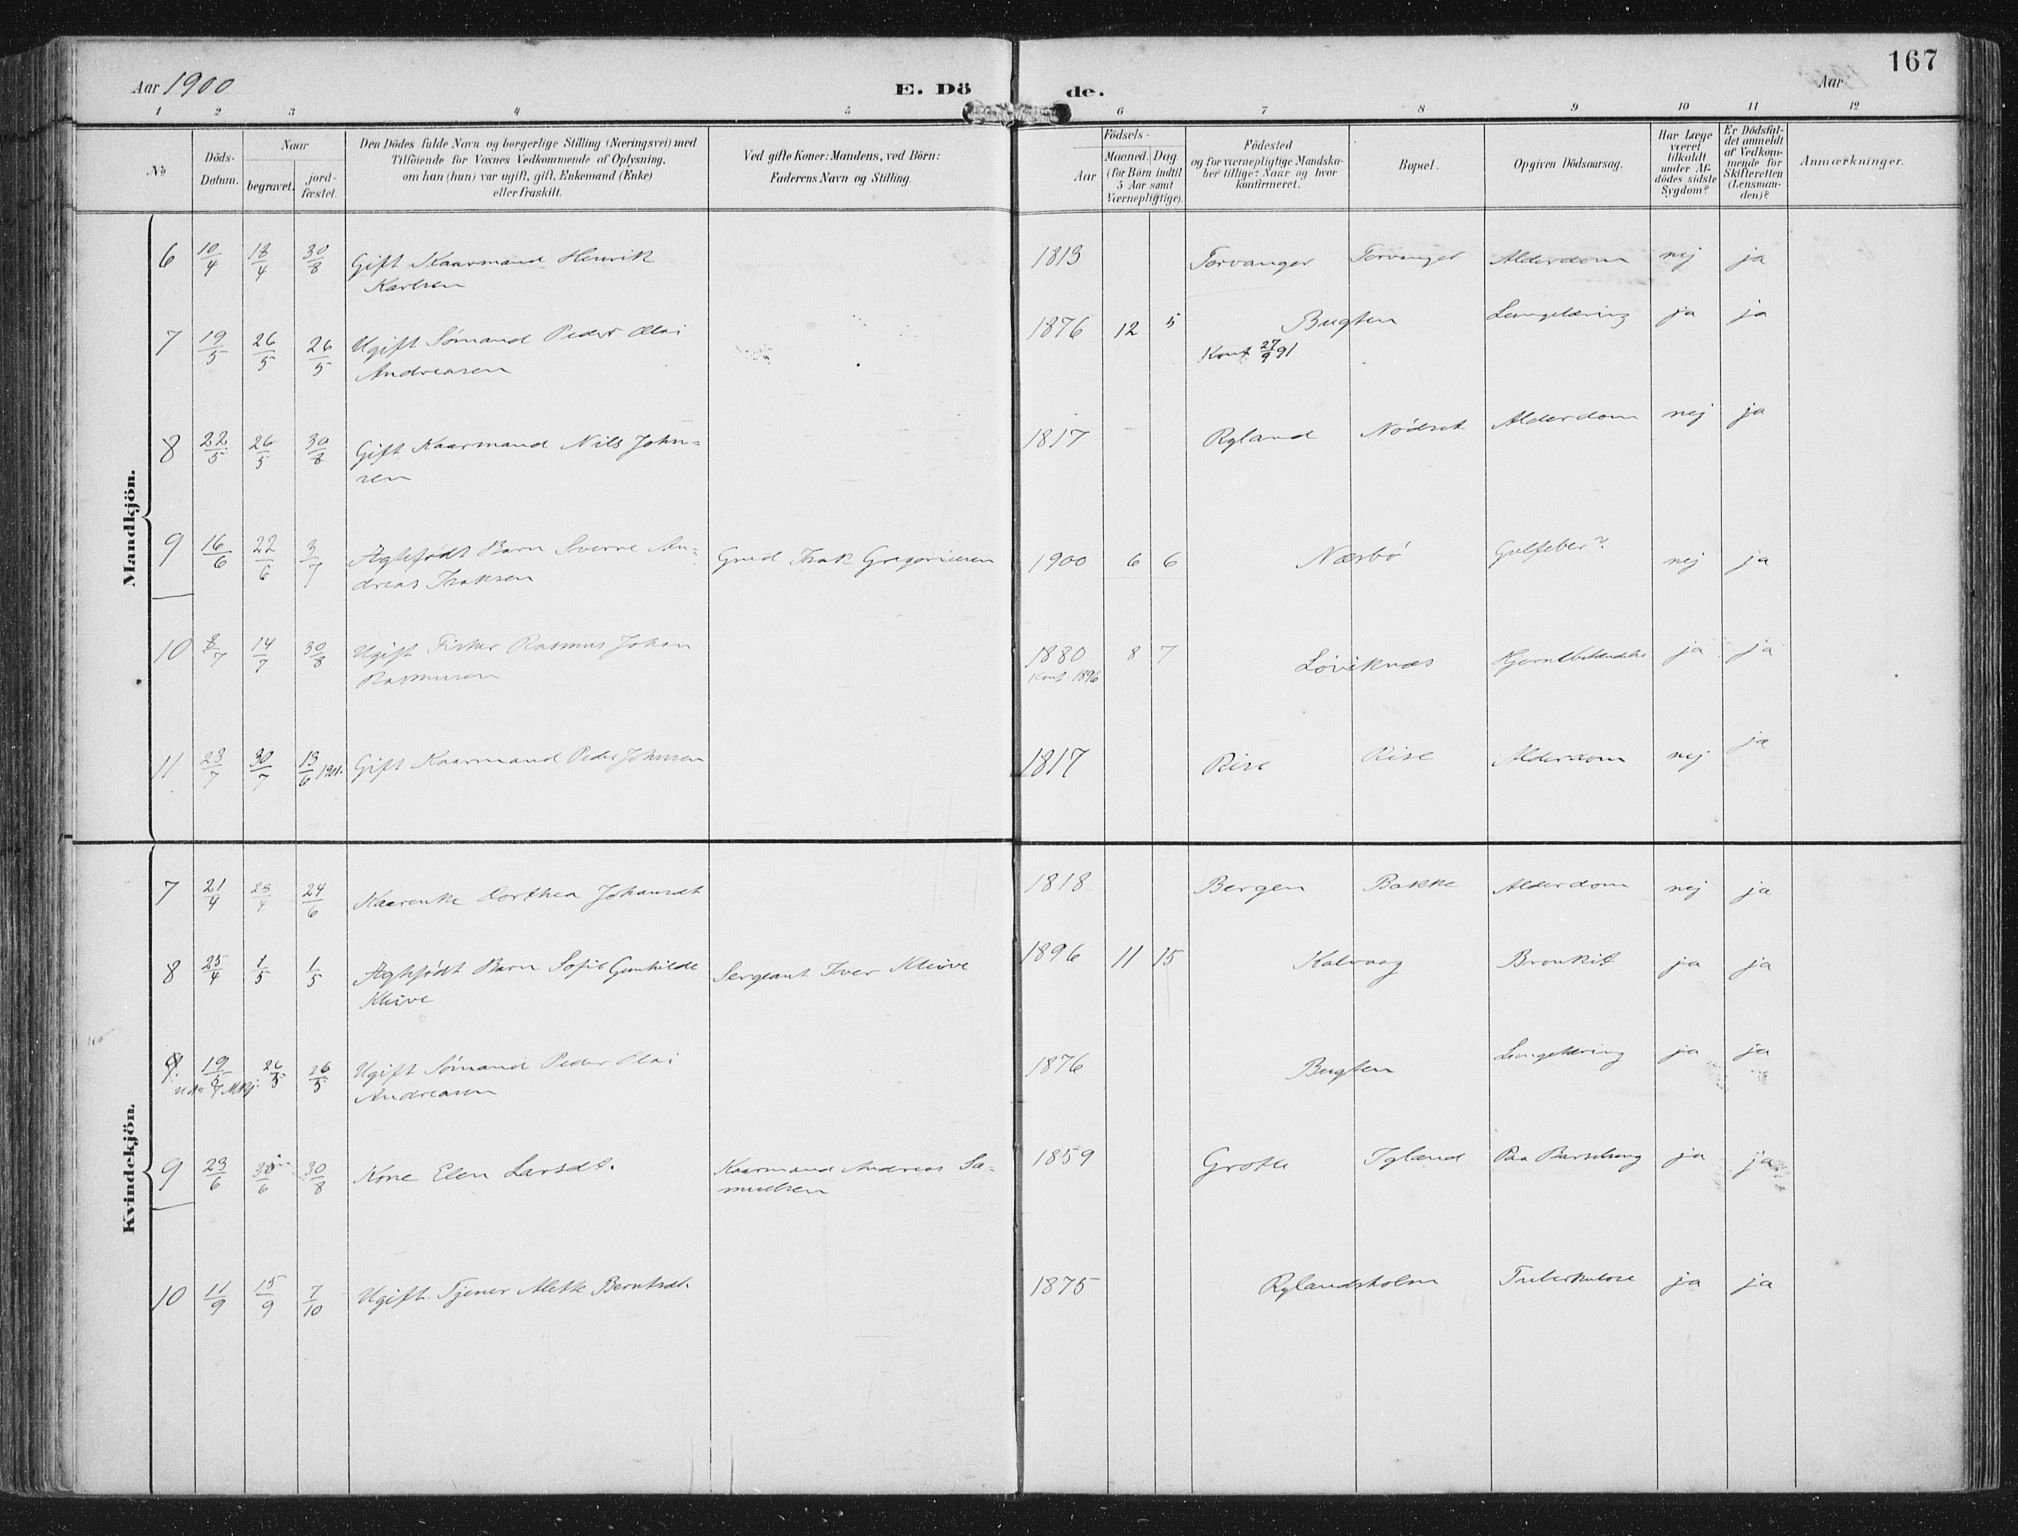 167
Aar 1900 E. Dö de. Aar
1 2 3 4 5 6 7 8 9 10 11 12
No. Döds-Datum. Naar begravet. jordfæstet. Den Dödes fulde Navn og borgerlige Stilling (Næringsvei) med Tilföiende for Voxnes Vedkommende af Oplysning, om han (hun) var ugift, gift, Enkemand (Enke) eller fraskilt. Ved gifte Koner: Mandens, ved Börn: Faderens Navn og Stilling. Födsels- Aar Maaned. Dag. (for Börn indtil 5 Aar samt Værnepligtige). Födested og for værnepligtige Mandskaber tillige: Naar og hvor konfirmeret. Bopæl. Opgiven Dödsaarsag. Har Læge været tilkaldt under Afdödes sidste Sygdom? Er Dödsfaldet anmeldt af Vedkommende for Skifteretten (Lensmanden)? Anmærkninger.
Mandkjön.
6 10/4 18/4 30/8 Gift Kaarmand Henrik 1813 Torvanger Torvanger Alderdom nej ja
Karlsen
7 19/5 26/5 26/5 Ugift Sømand Peder Olai 1876 12 5 Bugten Lungetæring ja ja
Andreasen Konf 27/9 91
8 22/5 26/5 30/8 Gift Kaarmand Nils John- 1817 Ryland Nødset Alderdom nej ja
sen
9 16/6 22/6 3/7 Ægtefødt Barn Sverre An- Gmd Isak Gregoriussen 1900 6 6 Nærbø Gulfeber? nej ja
dreas Isaksen
10 8/7 14/7 30/8 Ugift Fisker Rasmus Johan 1880 8 7 Løviknæs ja ja
Rasmussen Konf. 1896
11 23/7 30/7 13/6 1901. Gift Kaarmand Peder Johnsen 1817 Rise Rise Alderdom nej ja
Kvindekjön.
7 21/4 23/4 24/6 Kaarenke Dorthea Johansdt 1818 Bergen Bakke Alderdom nej ja
8 25/4 1/5 1/5 Ægtefødt Barn Sofie Gunhilde Sergeant Iver Kleive 1896 11 15 Kalvaag Bronkit ja ja
Kleive
9. 19/5 26/5 26/5 Ugift Sømand Peder Olai 1876 Bugten Lungetæring ja ja
Andreasen
9 23/6 30/6 30/8 Kone Elen Larsdt. Kaarmand Andreas Sa- 1859 Grotle Igland Paa Barselseng ja ja
muelsen
10 11/9 15/9 7/10 Ugift Tjener Alette Berntsdt. 1875 Rylandsholm Tuberkulose ja ja